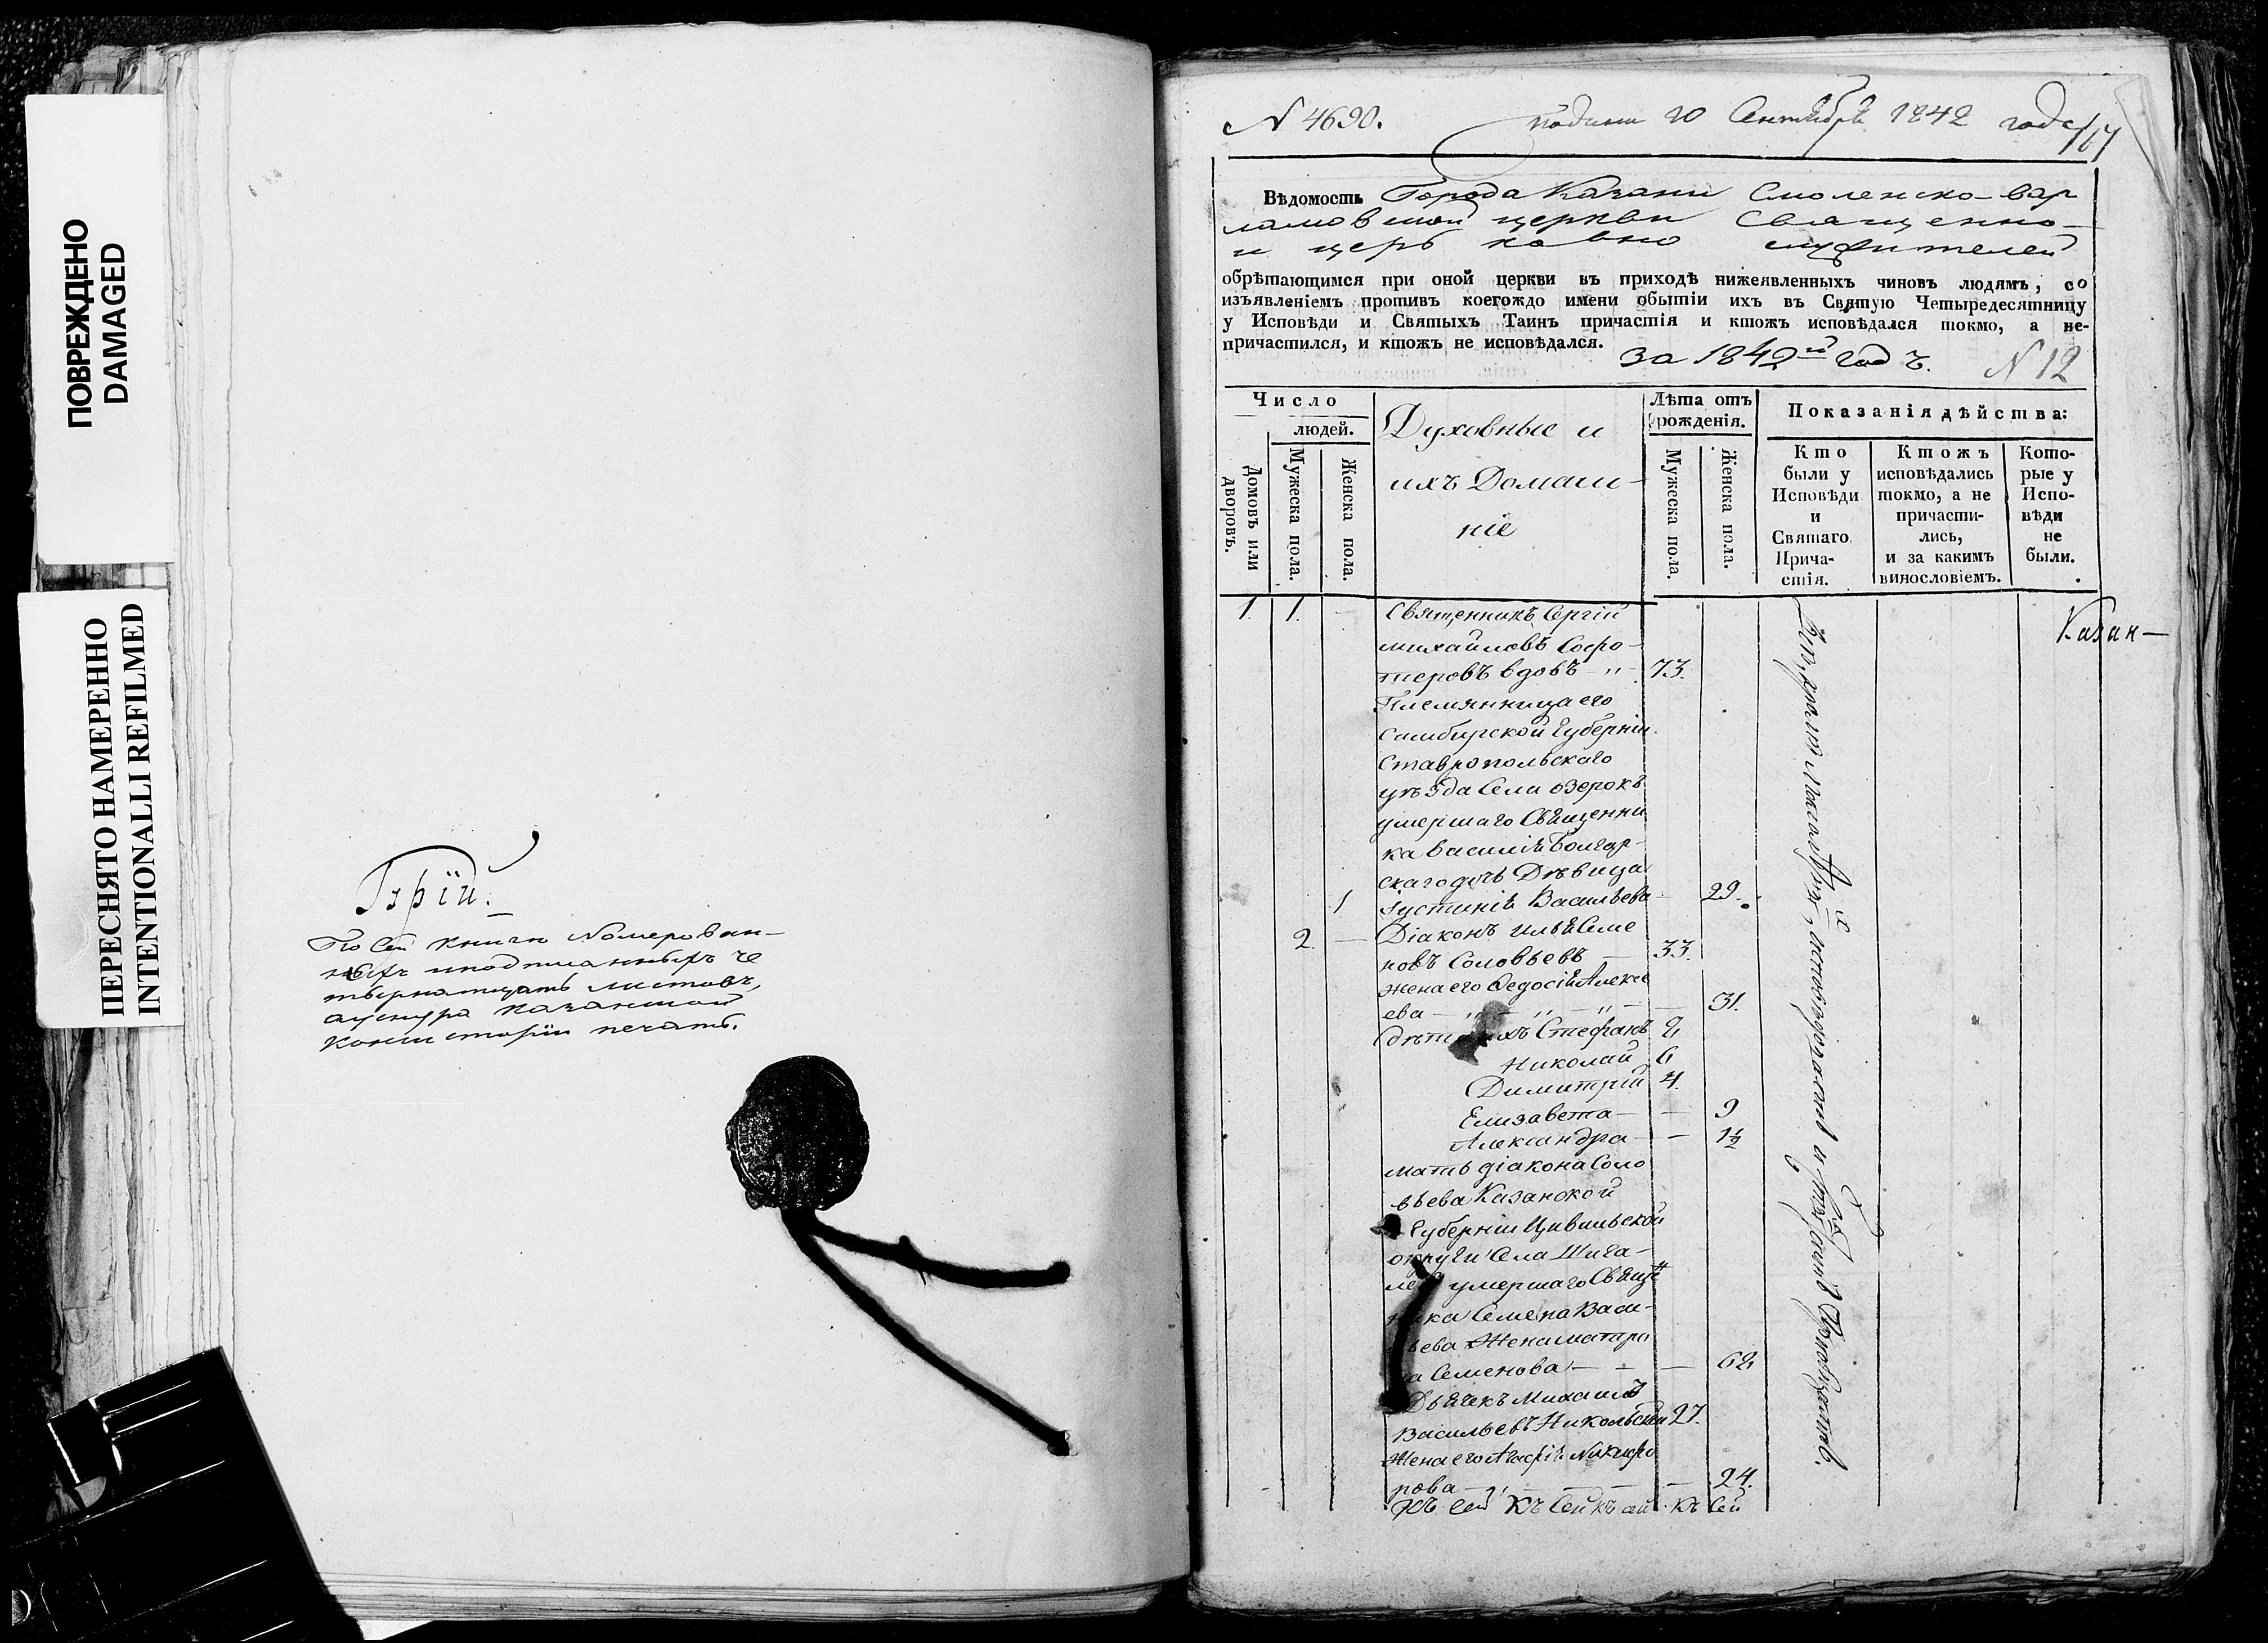 ПОВРЕЖДЕНО
DAMAGED
ПЕРЕСНЯТО НАМЕРЕННО
INTENTIONALLI REFILMED
По сей книги Номерован-
ныхъ и подписанныхъ че
тырнатцать листовъ,
а у снура Казанской
Консисторіи печать.
N 4690.
подана 20 Сентября 1842 года
Вѣдомость Города Казани Смоленско-вар
ламовской церкви Священно-
и церь ковно служителей
обрѣтающимся при оной церкви въ приходѣ нижеявленныхъ чиновъ людямъ, со
изъявленіемъ противъ коегождо имени обытіи ихъ въ Святую Четыредесятницу
у Исповѣди и Святыхъ Таинъ причастія и ктожъ исповѣдался токмо, а не-
причастился, и ктожъ не исповѣдался.
за 1842й годъ. N 12
Число
людей.
Домовъ или
дворовъ.
Мужеска пола.
Женска пола.
Духовные и
ихъ Домаш-
ніе
Лѣта отъ
рожденія.
Мужеска пола.
Женска пола.
Показанія дѣйства:
Кто
были у
Исповѣди
и
Святаго
Прича-
стія.
Ктожъ
исповѣдались
токмо, а не
причасти-
лись,
и за какимъ
винословіемъ.
Кото-
рые у
Испо-
вѣди
не
были.
1. 1. - Священникъ Сергій
Михайловъ
вдовъ - 73.
Племянница его
Симбирской Губерніи
Ставропольскаго
уѣзда Села Озерокъ
умершаго Священни
ка Василія Болгар-
скаго дочь Дѣвица
1 Іустинія Васильева - 29.
2. - Діаконъ Илья Семе
новъ Соловьевъ - 33.
жена его Ѳедосія Алексе
ева - 31.
дѣти ихъ Стефанъ
Николай 6
Димитрій 4.
Елизавета - 9
Александра - 1½
мать діакона Соло
вьева Казанской
Губерніи Цивильской
округи Села Шига-
лей умершаго Свяще
ника Семена Васи-
ьева Жена Матре
на Семенова -
Дьячекъ Михаилъ
Васильевъ Никольскій 27.
Жена его Никифо
рова - 24.
Казан-